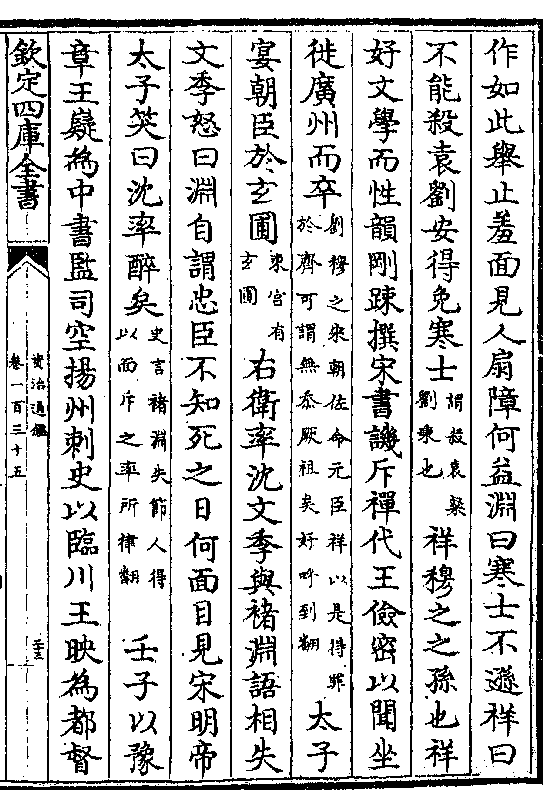 作如此舉止羞面見人扇障何益淵曰寒士不遜祥曰
不能殺袁劉安得免寒士謂殺袁粲劉秉也祥穆之之孫也祥
好文學而性韻剛踈撰宋書譏斥禪代王儉密以聞坐
徙廣州而卒劉穆之宋朝佐命元臣祥以是得罪於齊可謂無忝厥祖矣好呼到翻太子
宴朝臣於玄圃東宫有玄圃右衛率沈文季與褚淵語相失
文季怒曰淵自謂忠臣不知死之日何面目見宋明帝
太子笑曰沈率醉矣史言褚淵失節人得以面斥之率所律翻壬子以豫
章王嶷為中書監司空揚州刺史以臨川王映為都督
欽定四庫全書
資治通鑑
卷一百三十五